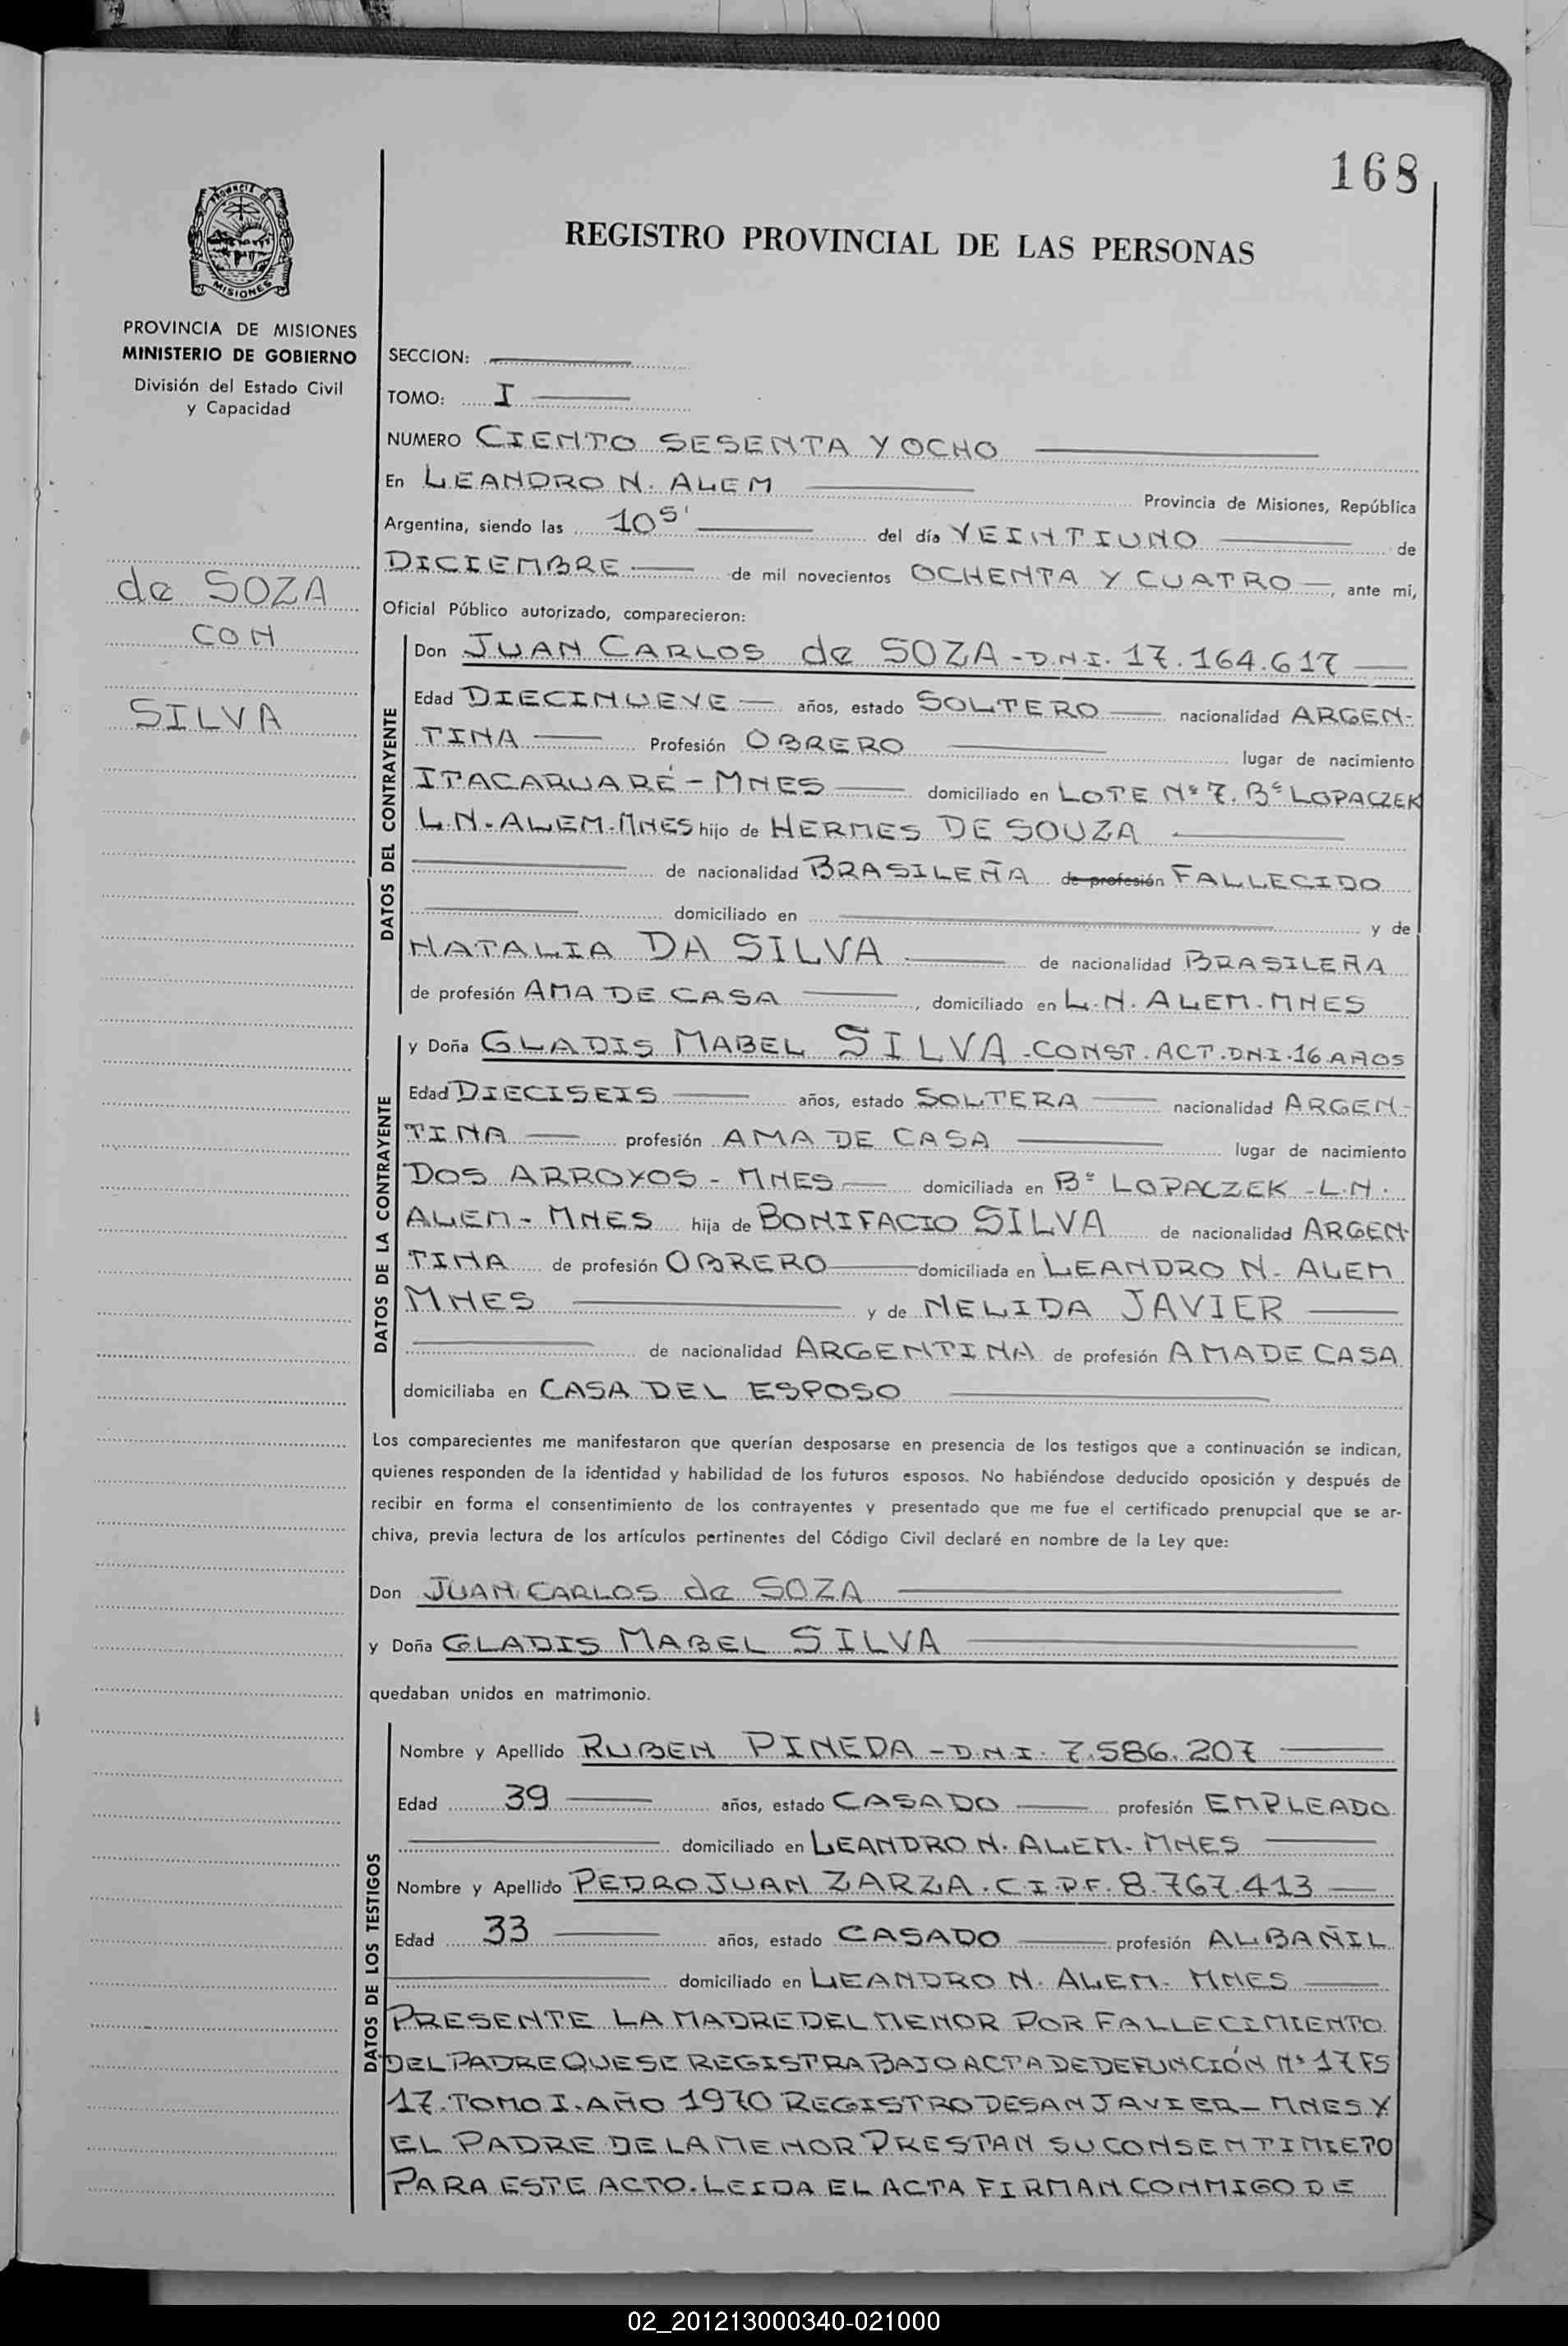 168
PROVINCIA DE
MISIONES
REGISTRO PROVINCIAL DE LAS PERSONAS
PROVINCIA DE MISIONES
MINISTERIO DE GOBIERNO
División del Estado Civil
y Capacidad
de SOZA
CON
SILVA
SECCION:
TOMO: I
NUMERO CIENTO SESENTA Y OCHO
En LEANDRO N. ALEM Provincia de Misiones, República
Argentina, siendo las 10 5' del día VEINTIUNO de
DICIEMBRE de mil novecientos OCHENTA Y CUATRO, ante mí,
Oficial Público autorizado, comparecieron:
DATOS DEL CONTRAYENTE
Don JUAN CARLOS de SOZA - D.N.I. 17.164.617
Edad DIECINUEVE años, estado SOLTERO nacionalidad ARGEN-
TINA Profesión OBRERO lugar de nacimiento
ITACARUARÉ - MNES domiciliado en LOTE Nº 7. Bº LOPACZEK
L.N. ALEM. MNES hijo de HERMES DE SOUZA
de nacionalidad BRASILEÑA de profesión FALLECIDO
domiciliado en y de
NATALIA DA SILVA de nacionalidad BRASILEÑA
de profesión AMA DE CASA, domiciliado en L.N. ALEM. MNES
DATOS DE LA CONTRAYENTE
y Doña GLADIS MABEL SILVA - CONST. ACT. D.N.I. 16 AÑOS
Edad DIECISEIS años, estado SOLTERA nacionalidad ARGEN-
TINA profesión AMA DE CASA lugar de nacimiento
DOS ARROYOS - MNES domiciliada en Bº LOPACZEK - L.N.
ALEM - MNES hija de BONIFACIO SILVA de nacionalidad ARGEN-
TINA de profesión OBRERO domiciliada en LEANDRO N. ALEM
MNES y de NELIDA JAVIER
de nacionalidad ARGENTINA de profesión AMA DE CASA
domiciliaba en CASA DEL ESPOSO
Los comparecientes me manifestaron que querían desposarse en presencia de los testigos que a continuación se indican,
quienes responden de la identidad y habilidad de los futuros esposos. No habiéndose deducido oposición y después de
recibir en forma el consentimiento de los contrayentes y presentado que me fue el certificado prenupcial que se ar-
chiva, previa lectura de los artículos pertinentes del Código Civil declaré en nombre de la Ley que:
Don JUAN CARLOS de SOZA
y Doña GLADIS MABEL SILVA
quedaban unidos en matrimonio.
DATOS DE LOS TESTIGOS
Nombre y Apellido RUBEN PINEDA - D.N.I. 7.586.207
Edad 39 años, estado CASADO profesión EMPLEADO
domiciliado en LEANDRO N. ALEM. MNES
Nombre y Apellido PEDRO JUAN ZARZA. C.I.P.F. 8.767.413
Edad 33 años, estado CASADO profesión ALBAÑIL
domiciliado en LEANDRO N. ALEM. MNES
PRESENTE LA MADRE DEL MENOR POR FALLECIMIENTO
DEL PADRE QUE SE REGISTRA BAJO ACTA DE DEFUNCIÓN Nº 17 FS
17. TOMO I. AÑO 1970 REGISTRO DE SAN JAVIER - MNES Y
EL PADRE DE LA MENOR PRESTAN SU CONSENTIMIETO
PARA ESTE ACTO. LEIDA EL ACTA FIRMAN CONMIGO DE
02_201213000340-021000